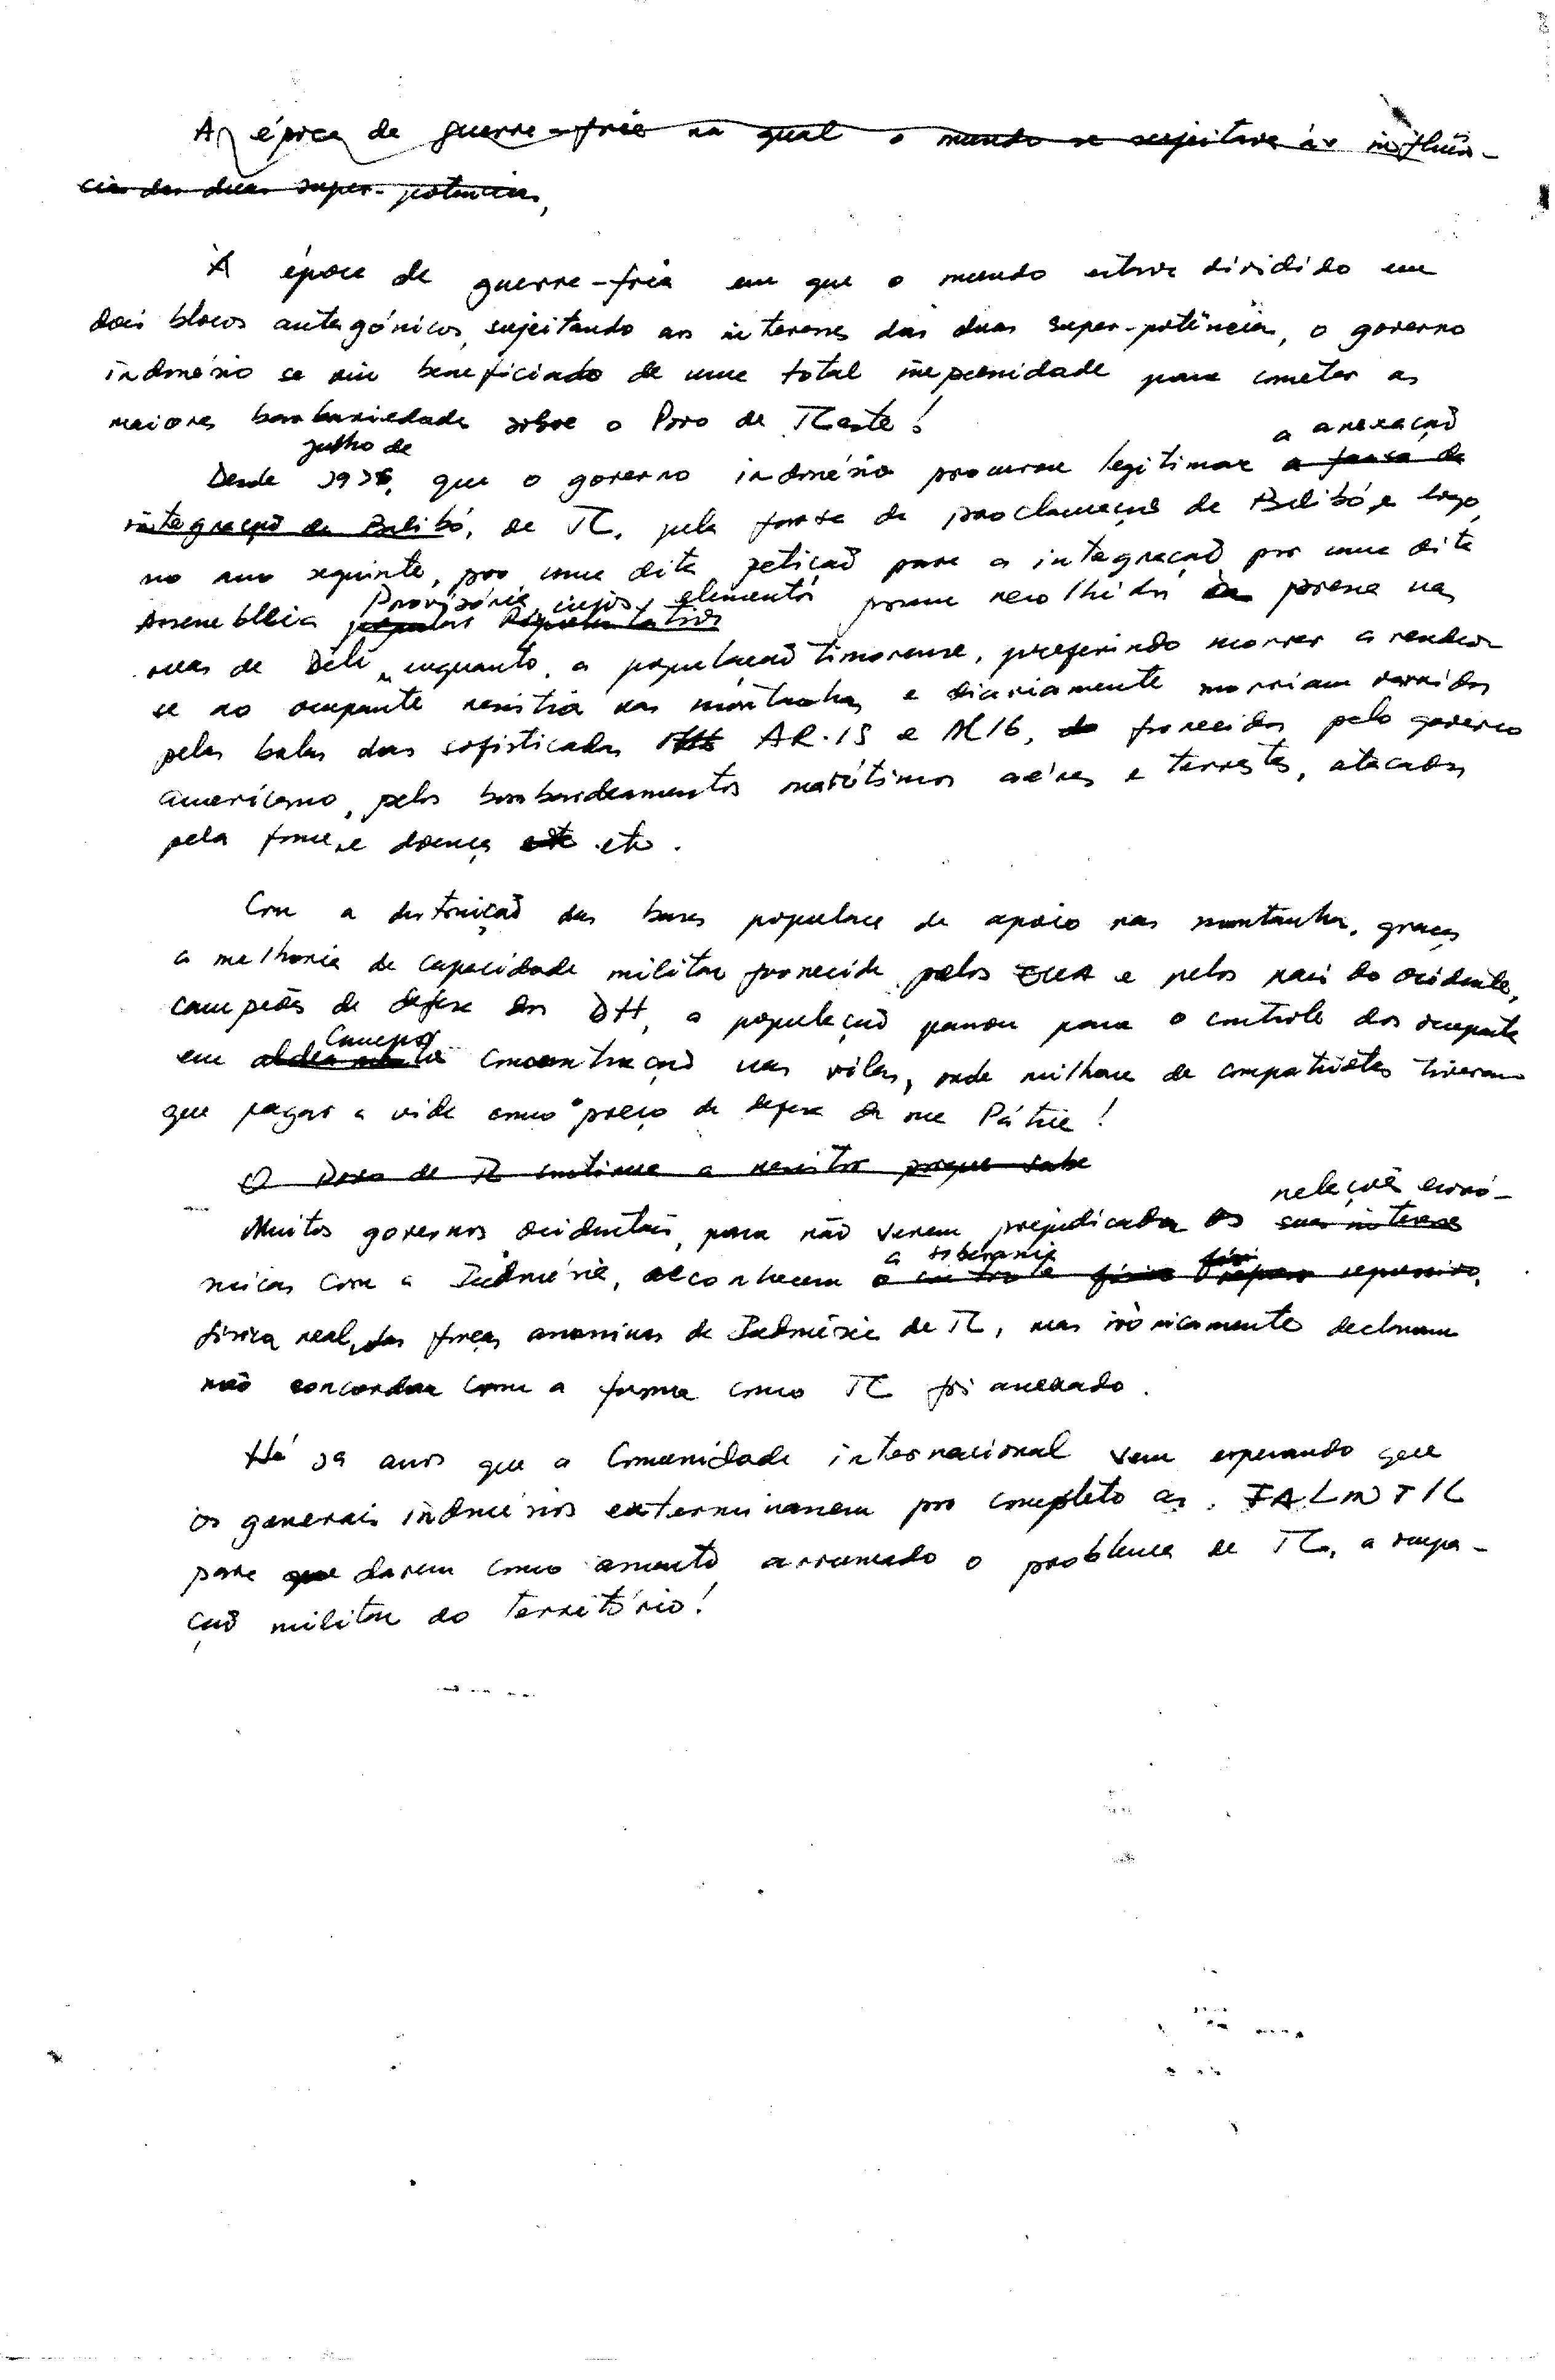 A época da guerra-fria na qual o mundo se sujeitava às influên-
cias das duas super-potências,
À época da guerra-fria em que o mundo estava dividido em
dois blocos antagónicos, sujeitando aos interesses das duas super-potências, o governo
indonésio se viu beneficiado de uma total impunidade para cometer as
maiores barbariedades sobre o Povo de TLeste!
julho de a anexação
Desde 1976, que o governo indonésio procurou legitimar a farsa da
integração de Balibó, de TL, pela farsa da proclamação de Balibó, e logo,
no ano seguinte, por uma dita petição para a integração por uma dita
Provisória, cujos elementos
Assembleia popular Representativa foram recolhidos à pressa nas
ruas de Dili, enquanto a população timorense, preferindo morrer a render-
se ao ocupante resistia nas montanhas e diariamente morriam varridos
pelas balas das sofisticadas AR-15 e M16, fornecidas pelo governo
americano, pelos bombardeamentos marítimos aéreos e terrestes, atacados
pela fome, e doença etc.
Com a destruição das bases populares de apoio nas montanhas, graças
a melhoria da capacidade militar fornecida pelos EUA e pelos país do ocidente,
campeões da defesa dos DH, a população passou para o controle dos ocupante
campos
em concentração nas vilas, onde milhares de compatriotas tiveram
que pagar a vida como preço da defesa da sua Pátria!
O Povo de TL continua a resistir porque sabe
relações econó-
Muitos governos ocidentais, para não verem prejudicados os seus interesses
a soberania
micas com a Indonésia, reconhecem o controle físico repressivo,
física real, das forças assassinas da Indonésia de TL, mas irònicamente declaram
não concordar com a forma como TL foi anexado.
Há 19 anos que a Comunidade internacional vem esperando que
os generais indonésios exterminassem por completo as FALINTIL
para que darem como assunto arrumado o problema de TL, a ocupa-
ção militar do território!